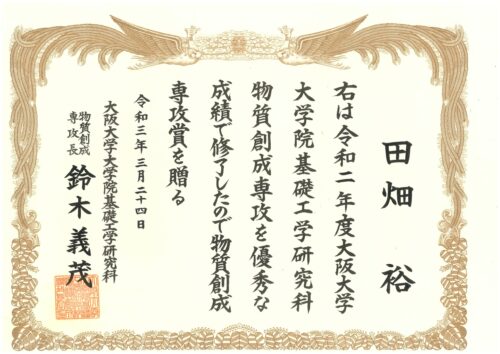 田畑 裕
右は令和二年度大阪大学
大学院基礎工学研究科
物質創成専攻を優秀な
成績で修了したので物質創成
専攻賞を贈る
令和三年三月二十四日
大阪大学大学院基礎工学研究科
物質創成
専攻長
鈴木義茂